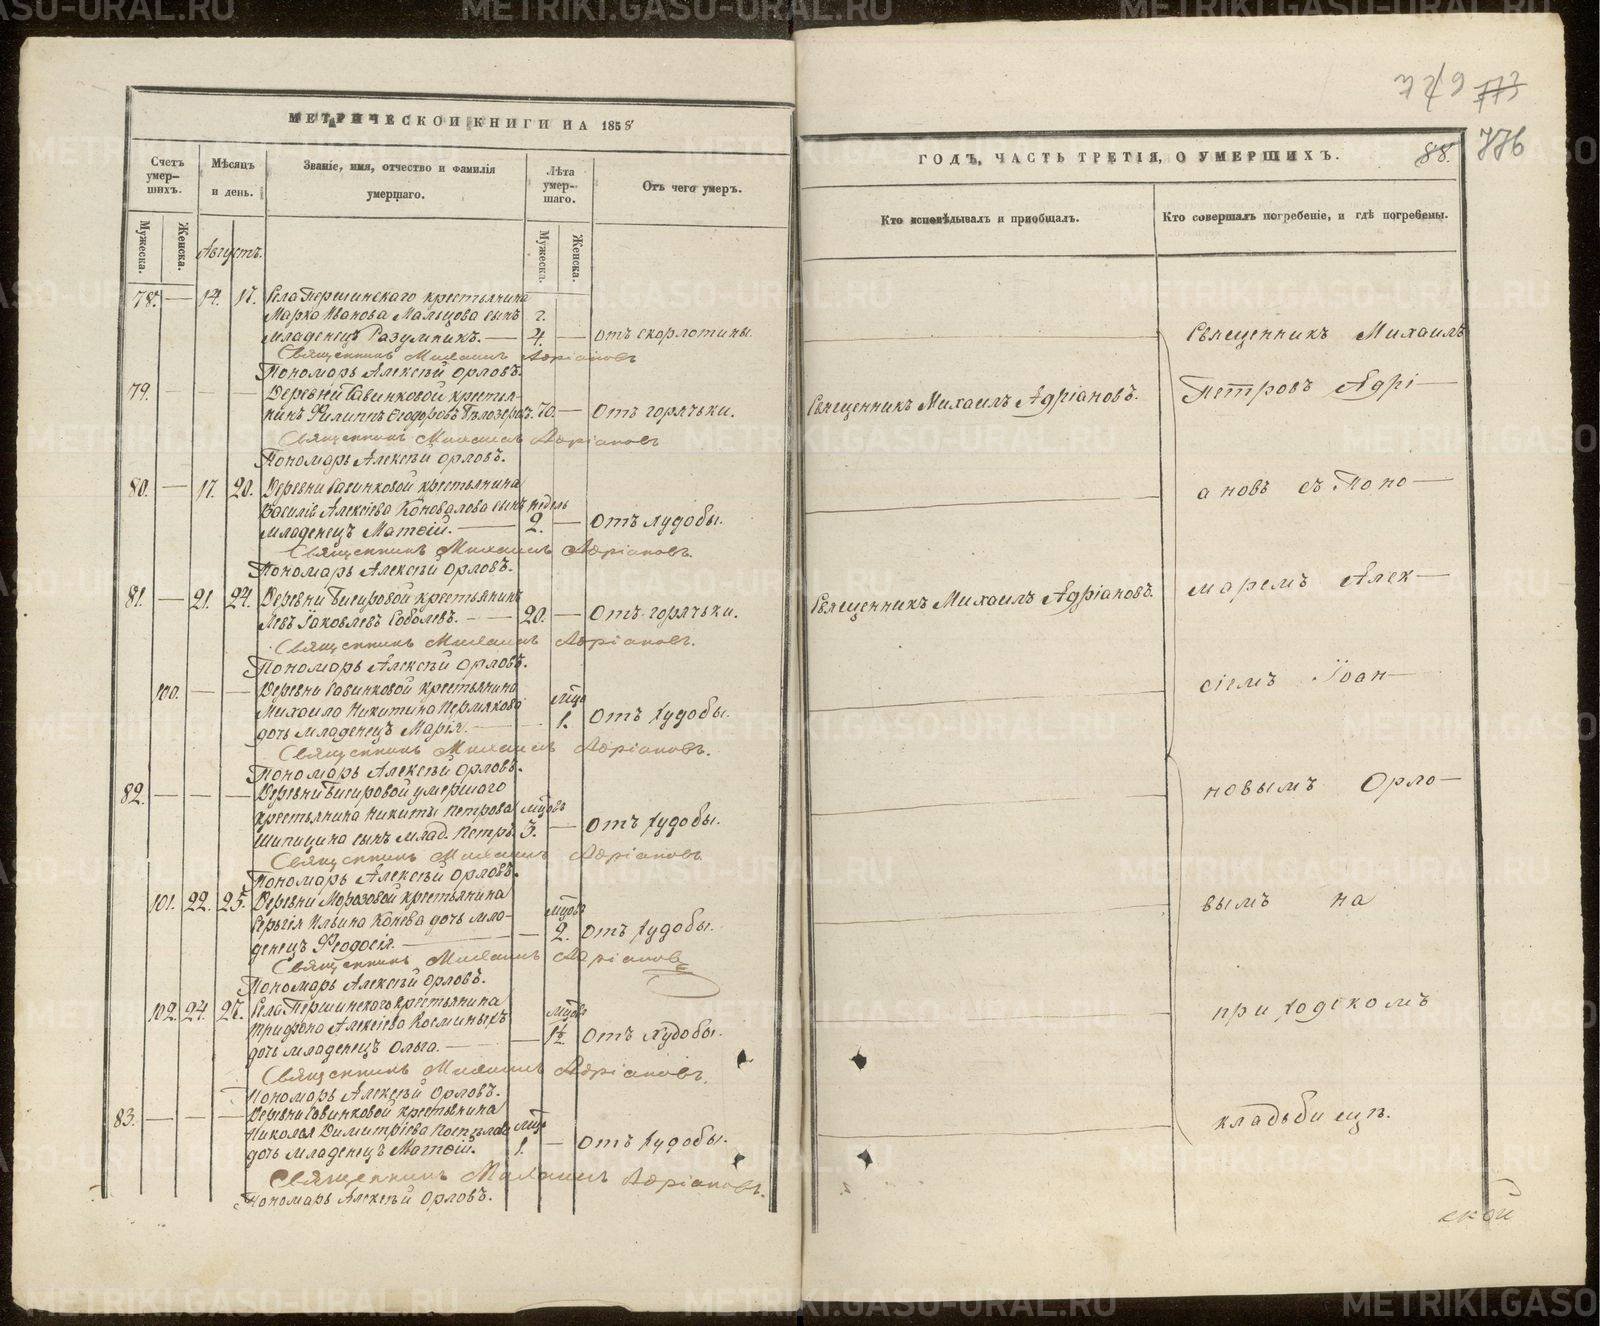 МЕТРИЧЕСКОЙ КНИГИ НА 1858
Счетъ умер-шихъ.
Мѣсяцъ и день.
Званіе, имя, отчество и фамилія умершаго.
Лѣта умер-шаго.
Отъ чего умеръ.
Мужеска.
Женска.
Мужеска.
Женска.
Августъ.
78. — 14. 17. Села Першинскаго крестьянина
Марка Иванова Мальцова сынъ г.
младенецъ Разумникъ. — 4. — отъ скорлотины.
Священникъ Михаилъ Адріановъ
Пономарь Алексѣй Орловъ.
79. — — — Деревни Савинковой крестья-
нинъ Филиппъ Ѳеодоровъ Бѣлозеровъ. 70. — Отъ горячьки.
Священникъ Михаилъ Адріановъ
Пономарь Алексѣй Орловъ.
80. — 17. 20. Деревни Савинковой крестьянина
Василія Алексіева Коновалова сынъ недель
младенецъ Матѳій. — 2. — Отъ худобы.
Священникъ Михаилъ Адріановъ.
Пономарь Алексѣй Орловъ.
81. — 21. 24. Деревни Бисеровой крестьянинъ
Левъ Іаковлевъ Соболевъ. — 20. — Отъ горячьки.
Священникъ Михаилъ Адріановъ.
Пономарь Алексѣй Орловъ.
100. — — Деревни Савинковой крестьянина
Михаила Никитина Пермякова мѣц.
дочь младенецъ Марія. — 1. Отъ худобы.
Священникъ Михаилъ Адріановъ.
Пономарь Алексѣй Орловъ.
82. — — — Деревни Бисеровой умершаго
крестьянина Никиты Петрова мѣцовъ
Шипицина сынъ млад. Петръ. 3. — Отъ худобы.
Священникъ Михаилъ Адріановъ
Пономарь Алексѣй Орловъ.
101. 22. 25. Деревни Морозовой крестьянина
Сергія Ильина Конева дочь мла- мѣцовъ
денецъ Ѳеодосія. — — 2. Отъ худобы.
Священникъ Михаилъ Адріановъ
Пономарь Алексѣй Орловъ.
102. 24. 27. Села Першинскаго крестьянина
Трифона Алексіева Косминыхъ мѣцовъ
дочь младенецъ Ольга. — — 1½ Отъ худобы.
Священникъ Михаилъ Адріановъ.
Пономарь Алексѣй Орловъ.
83. — — — Деревни Савинковой крестьянина
Николая Димитріева мѣц.
дочь младенецъ Матѳій. 1. — Отъ худобы.
Священникъ Михаилъ Адріановъ.
Пономарь Алексѣй Орловъ.
776
88.
ГОДЪ, ЧАСТЬ ТРЕТІЯ, О УМЕРШИХЪ.
Кто исповѣдывалъ и пріобщалъ.
Кто совершалъ погребеніе, и гдѣ погребены.
Священникъ Михаилъ Адріановъ.
Священникъ Михаилъ Адріановъ.
Священникъ Михаилъ
Петровъ Адрі—
ановъ съ Поно—
маремъ Алек—
сіемъ Іоан—
новымъ Орло—
вымъ на
приходскомъ
кладьбищѣ.
ской